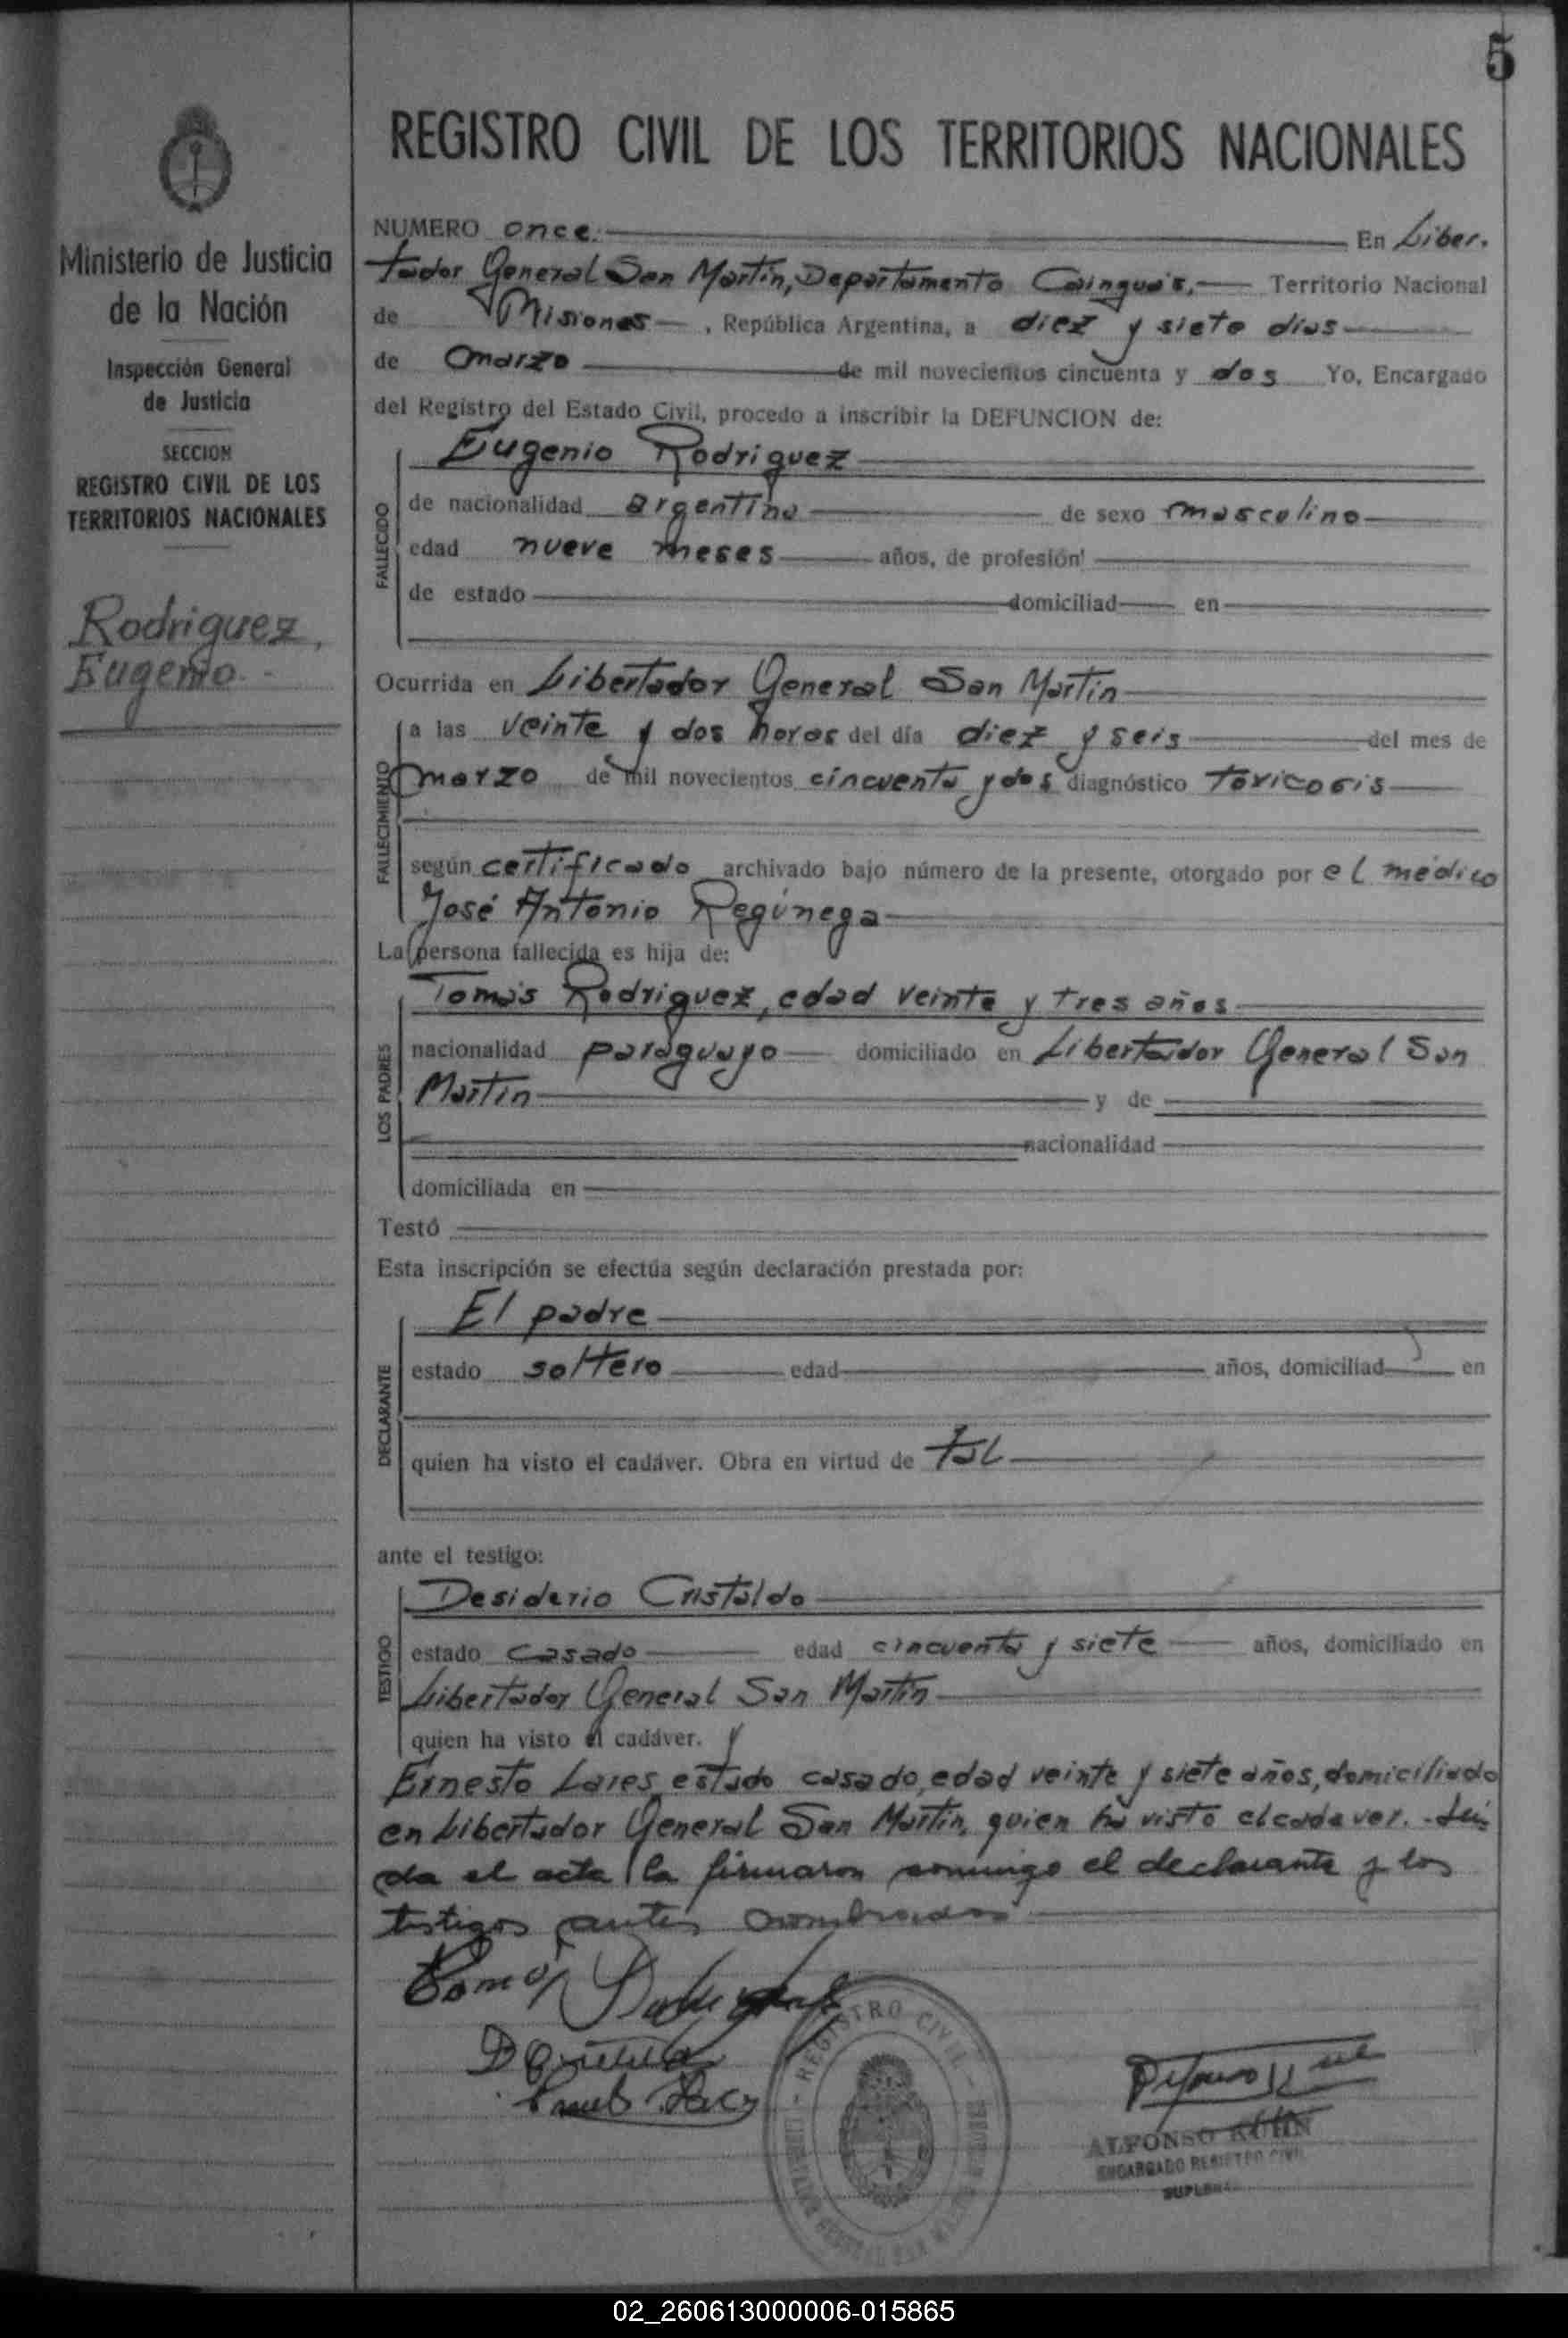 5
REGISTRO CIVIL DE LOS TERRITORIOS NACIONALES
Ministerio de Justicia
de la Nación
Inspección General
de Justicia
SECCION
REGISTRO CIVIL DE LOS
TERRITORIOS NACIONALES
Rodriguez,
Eugenio
NUMERO once. En Liber.
tador General San Martin, Departamento Cainguás, Territorio Nacional
de Misiones, República Argentina, a diez y siete dias
de marzo de mil novecientos cincuenta y dos Yo, Encargado
del Registro del Estado Civil, procedo a inscribir la DEFUNCION de:
FALLECIDO
Eugenio Rodriguez
de nacionalidad argentina de sexo masculino
edad nueve meses años, de profesión
de estado domiciliad en
Ocurrida en Libertador General San Martin
FALLECIMIENTO
a las veinte y dos horas del día diez y seis del mes de
marzo de mil novecientos cincuenta y dos diagnóstico Toxicosis
según certificado archivado bajo número de la presente, otorgado por el médico
José Antonio Regúnega
La persona fallecida es hija de:
LOS PADRES
Tomás Rodriguez, edad veinte y tres años
nacionalidad paraguayo domiciliado en Libertador General San
Martin y de
nacionalidad
domiciliada en
Testó
Esta inscripción se efectúa según declaración prestada por:
DECLARANTE
El padre
estado soltero edad años, domiciliad en
quien ha visto el cadáver. Obra en virtud de tal
ante el testigo:
TESTIGO
Desiderio Cristaldo
estado casado edad cincuenta y siete años, domiciliado en
Libertador General San Martin
quien ha visto el cadáver. y
Ernesto Lares, estado casado, edad veinte y siete años, domiciliado
en Libertador General San Martin, quien ha visto el cadaver. - Lei
da el acta la firmaron conmigo el declarante y los
testigos antes nombrados
REGISTRO CIVIL
ALFONSO KUHN
ENCARGADO REGISTRO CIVIL
SUPLENTE
02_260613000006-015865